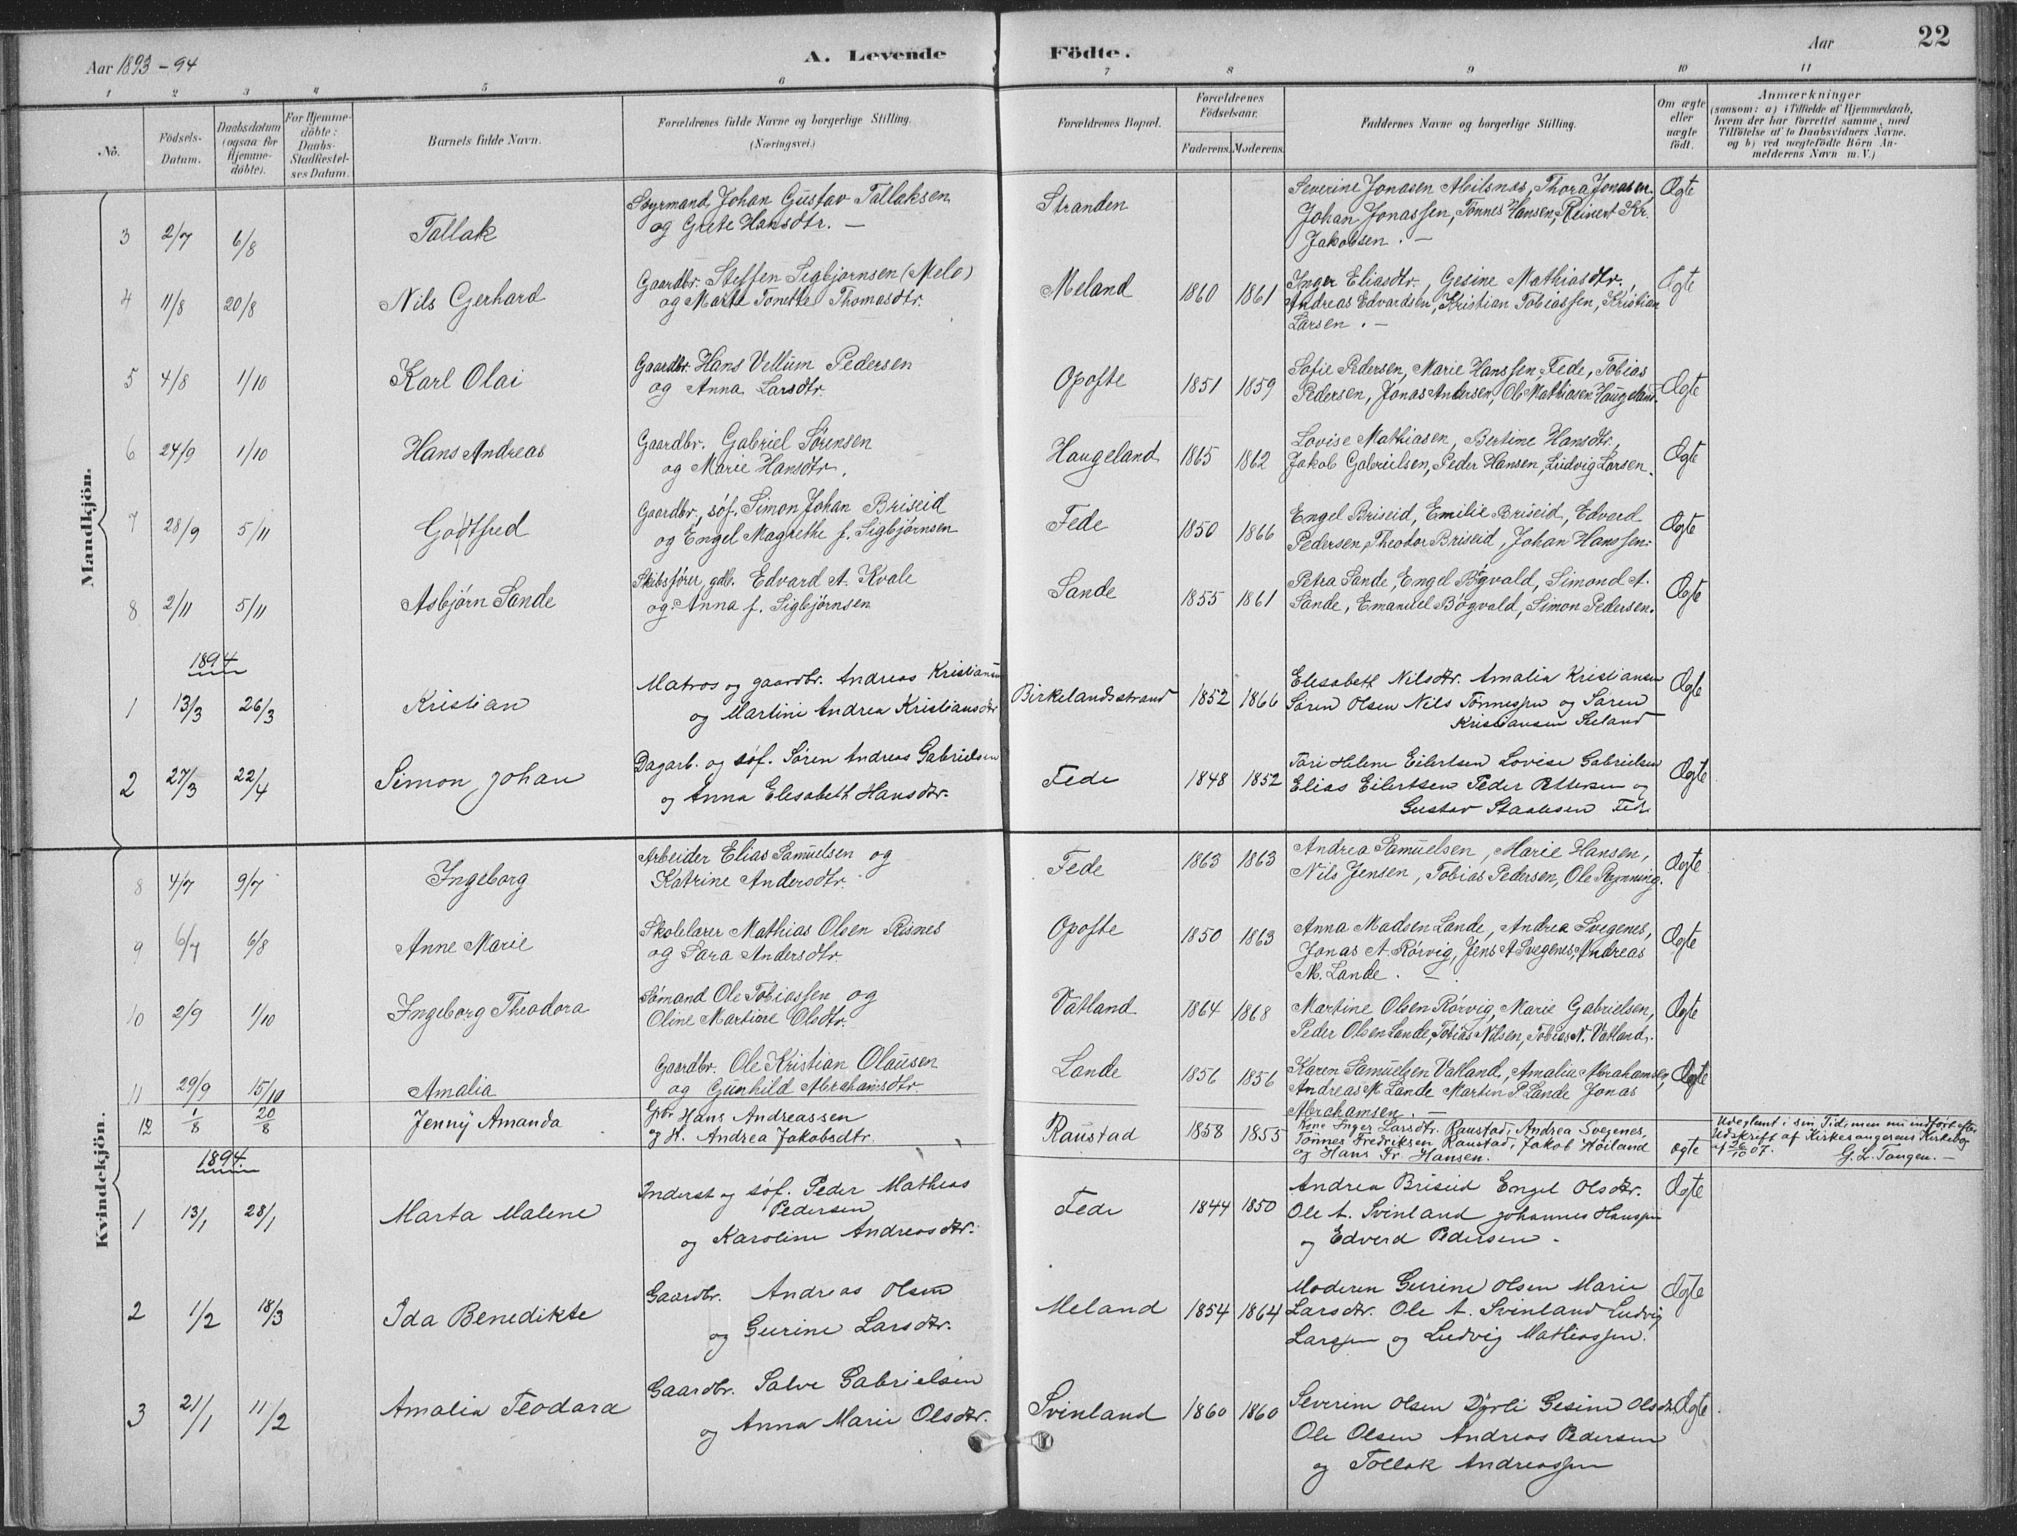 Aar 1893-94
A. Levende Födte.
Aar
22
1 2 3 4 5 6 7 8 9 10 11
No.
Födsels-Datum.
Daabsdatum (ogsaa for Hjemme-döbte).
For Hjemme-döbte: Daabs-Stadfæstel-ses Datum.
Barnets fulde Navn.
Forældrenes fulde Navne og borgerlige Stilling. (Næringsvei.)
Forældrenes Bopæl.
Forældrenes Födselsaar.
Faderens. Moderens.
Faddernes Navne og borgerlige Stilling.
Om ægte eller uægte födt.
Anmærkninger
(saasom: a) i Tilfælde af Hjemmedaab, hvem der har forrettet samme, med Tilföielse af to Daabsvidners Navne, og b) ved uægtefödte Börn An-melderens Navn m. V.)
Mandkjön.
3 2/7 6/8 Tallak
Styrmand Johan Gustav Tallaksen
og Grete Hansdtr. —
Stranden
Severine Jonasen Abilsnas, Thora Jonasen,
Johan Jonassen, Tønnes Hansen, Reinert Kr.
Jakobsen. —
Ægte
4 11/8 20/8 Nils Gerhard
Gaardbr. Steffen Sigbjørnsen (Mele)
og Marta Tonette Thomasdtr.
Meland 1860 1861
Inger Eliasdtr., Gesine Mathiasdtr.,
Andreas Edvardsen, Kristian Tobiassen, Kristian
Larsen. —
Ægte
5 4/8 1/10 Karl Olai
Gaardbr. Hans Vellum Pedersen
og Anna Larsdtr.
Opofte 1851 1859
Sofie Pedersen, Marie Hanssen Fede, Tobias
Pedersen, Jonas Andersen, Ole Mathiasen Haugeland.
Ægte
6 24/9 1/10 Hans Andreas
Gaardbr. Gabriel Sørensen
og Marie Hansdtr.
Haugeland 1865 1862
Lovise Mathiasen, Bertine Hansdtr.,
Jakob Gabrielsen, Peder Hansen, Ludvig Larsen.
Ægte
7 28/9 5/11 Godtfred
Gaardbr., søf. Simon Johan Briseid
og Engel Magrethe f. Sigbjørnsen
Fede 1850 1866
Engel Briseid, Emilie Briseid, Edvard
Pedersen, Theodor Briseid, Johan Hanssen.
Ægte
8 2/11 5/11 Asbjørn Sande
Skibsfører, gdb. Edvard A. Kvale
og Anna f. Sigbjørnsen
Sande 1855 1861
Petra Sande, Engel Bøgvald, Simond A.
Sande, Emanuel Bøgvald, Simon Pedersen.
Ægte
1894
1 13/3 26/3 Kristian
Matros og gaardbr. Andreas Kristiansen
og Martine Andrea Kristiansdtr
Birkelandsstrand 1852 1866
Elesabeth Nilsdtr. Amalia Kristiansen
Søren Olsen Nils Tønnessen og Søren
Kristiansen
Ægte
2 27/3 22/4 Simon Johan
Dagarb. og søf. Søren Andreas Gabrielsen
og Anna Elesabeth Hansdtr.
Fede 1848 1852
Helene Eilertsen Lovise Gabrielsen
Elias Eilertsen Peder Pettersen og
Gustav Staalesen Fede
Ægte
Kvindekjön.
8 4/7 9/7 Ingeborg
Arbeider Elias Samuelsen og
Katrine Andersdtr.
Fede 1863 1863
Andrea Samuelsen, Marie Hansen,
Nils Jensen, Tobias Pedersen, Ole
Ægte
9 6/7 6/8 Anne Marie
Skolelærer Mathias Olsen Risnes
og Sara Andersdtr.
Opofte 1850 1863
Anna Madsen Lande, Andrea Svegenes,
Jonas A. Rørvig, Jens A Svegenes, Andreas
M. Lande. —
Ægte
10 2/9 1/10 Ingeborg Theodora
Sømand Ole Tobiassen og
Oline Martine Olsdtr.
Vatland 1864 1868
Martine Olsen Rørvig, Marie Gabrielsen,
Peder Olsen Lande, Tobias Nilsen, Tobias N. Vatland.
Ægte
11 29/9 15/10 Amalia
Gaardbr. Ole Kristian Olausen
og Gunhild Abrahamsdtr.
Lande 1856 1856
Karen Samuelsen Vatland, Amalia Abrahamsen,
Andreas M Lande Martin P. Lande Jonas
Abrahamsen. —
Ægte
12 1/8 20/8 Jenny Amanda
Gbr Hans Andreassen
og H. Andrea Jakobsdtr.
Raustad 1858 1855
Kone Inger Larsdtr. Raustad, Andrea Svegenes,
Tønnes Fredriksen Raustad, Jakob Høiland
og Hans Fr. Hansen.
ægte
Udeglemt i sin Tid, men nu indført efter
Udskrift af Kirkesangerens Kirkebog
af 26/10 07. G. L. Tangen. —
1894
1 13/1 28/1 Marta Malene
Inderst og søf. Peder Mathias
Pedersen
og Karoline Andreasdtr.
Fede 1844 1850
Andrea Briseid Engel Olsdtr.
Ole A. Svinland Johannes Hanssen
og Edverd Pedersen.
Ægte
2 1/2 18/3 Ida Benedikte
Gaardbr. Andreas Olsen
og Gurine Larsdtr.
Meland 1854 1864
Moderen Gurine Olsen Marie
Larsdtr. Ole A. Svinland Ludvig
Larssen og Ludvig Mathiassen.
Ægte
3 21/1 11/2 Amalia Teodora
Gaardbr. Salve Gabrielsen
og Anna Marie Olsdtr.
Svinland 1860 1860
Severine Olsen Dyrli Gesine Olsdtr
Ole Olsen Andreas Pedersen
og Tollak Andreassen
Ægte.